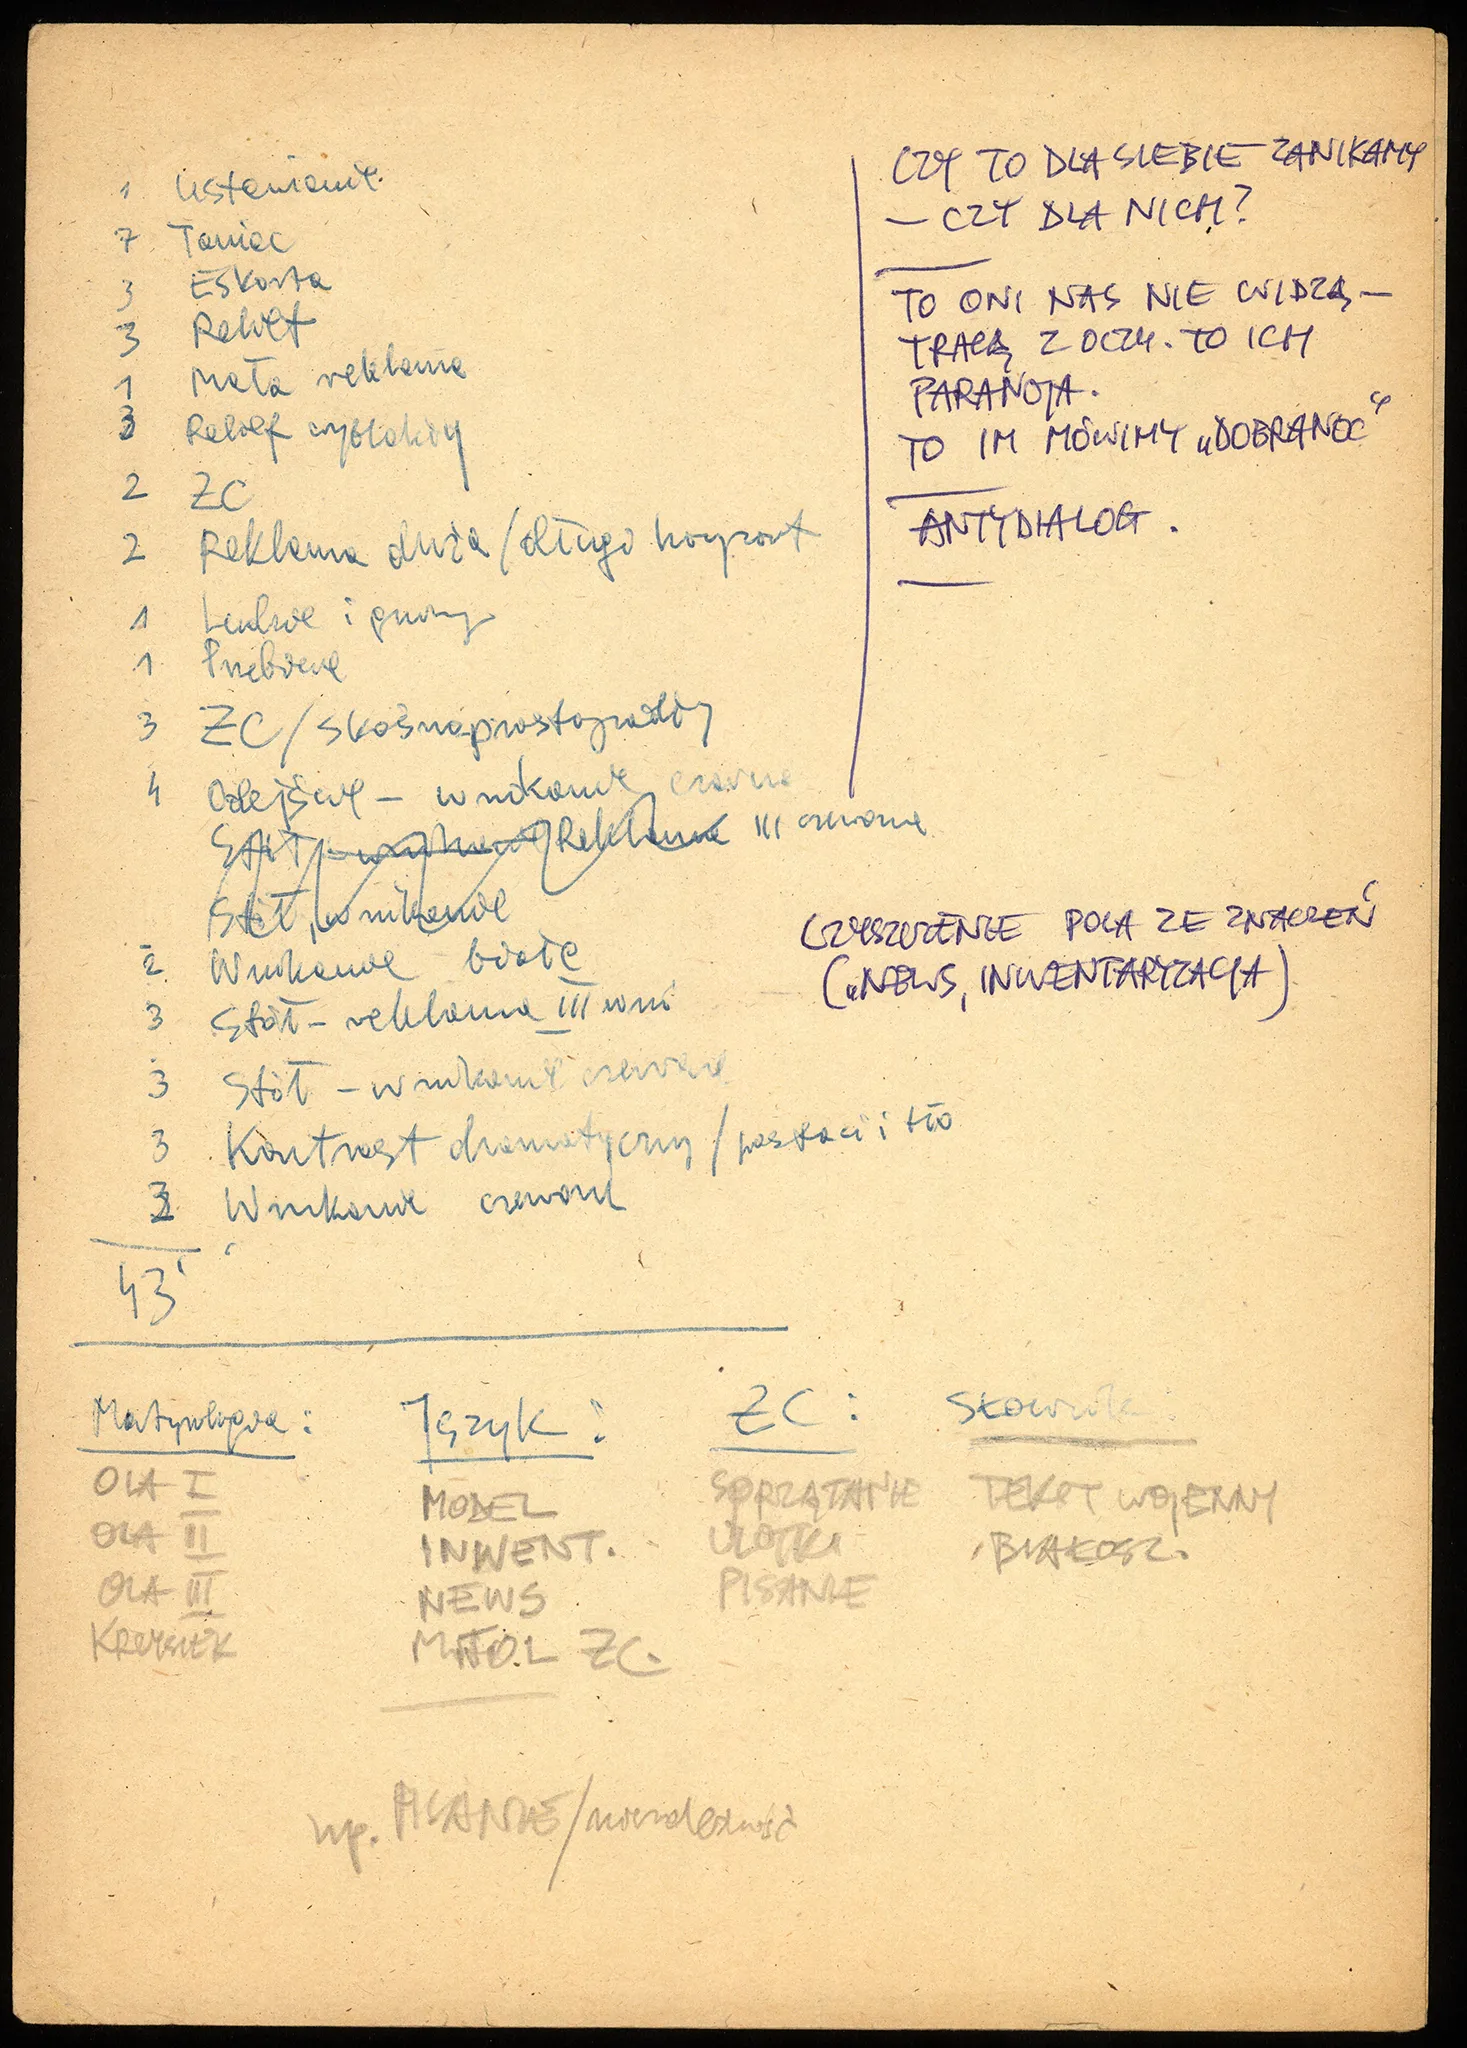 1 Ustawianie
7 Taniec
3 Eskorta
3 Relief
1 Mała reklama
3 Relief wypukły
2 ZC
2 Reklama duża / długi horyzont
1
1 Przebranie
3 ZC / skośnaprostopadły
4 Odejście – wnikanie czarne
Stół – wnikanie / Reklama III czerwone
Stół, wnikanie
2 Wnikanie białe
3 Stół – reklama III
3 Stół – wnikanie czerwone
3 Kontrast dramatyczny / postaci i tło
3 Wnikanie czerwone
43'
CZY TO DLA SIEBIE ZANIKAMY
– CZY DLA NICH?
TO ONI NAS NIE WIDZĄ –
TRACĄ Z OCZY. TO ICH
PARANOJA.
TO IM MÓWIMY „DOBRANOC"
ANTYDIALOG.
CZYSZCZENIE POLA ZE ZNACZEŃ
(„NEWS, INWENTARYZACJA)
Język:
MODEL
INWENT.
NEWS
ZC.
OLA I
OLA II
OLA III
KRZYSIEK
ZC:
SPRZĄTANIE
ULOTKI
PISANIE
Słownik:
TEKST WOJENNY
BIAŁOSZ.
np. PISANIE / niezależność